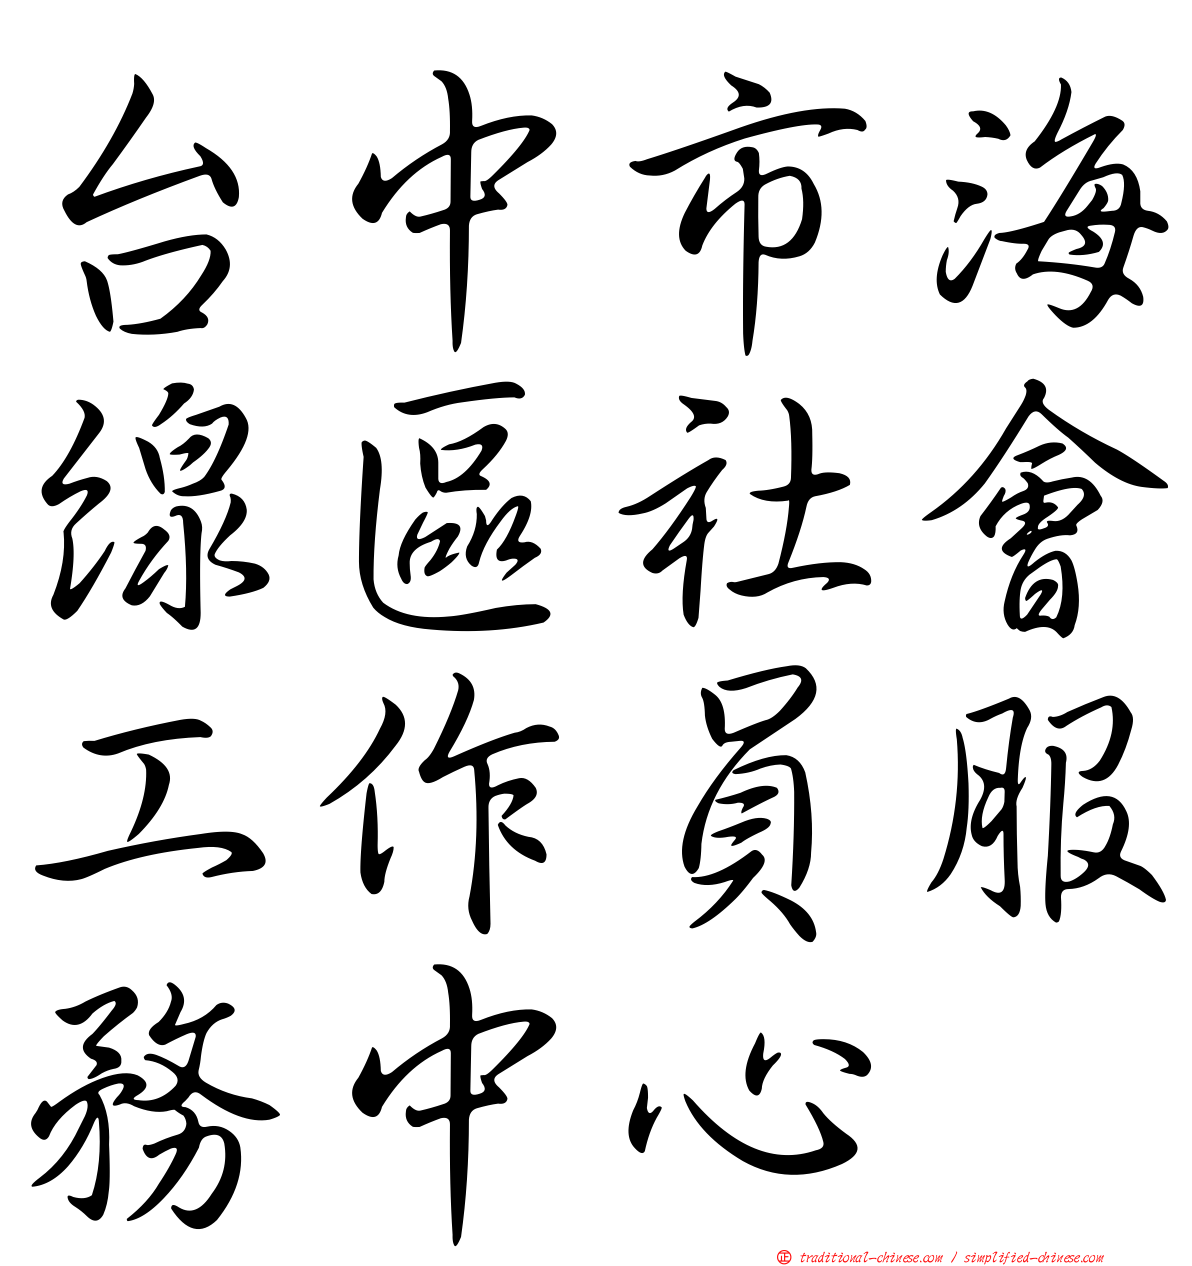 台中市海
線區社會
工作員服
務中心
正 traditional-chinese.com / simplified-chinese.com